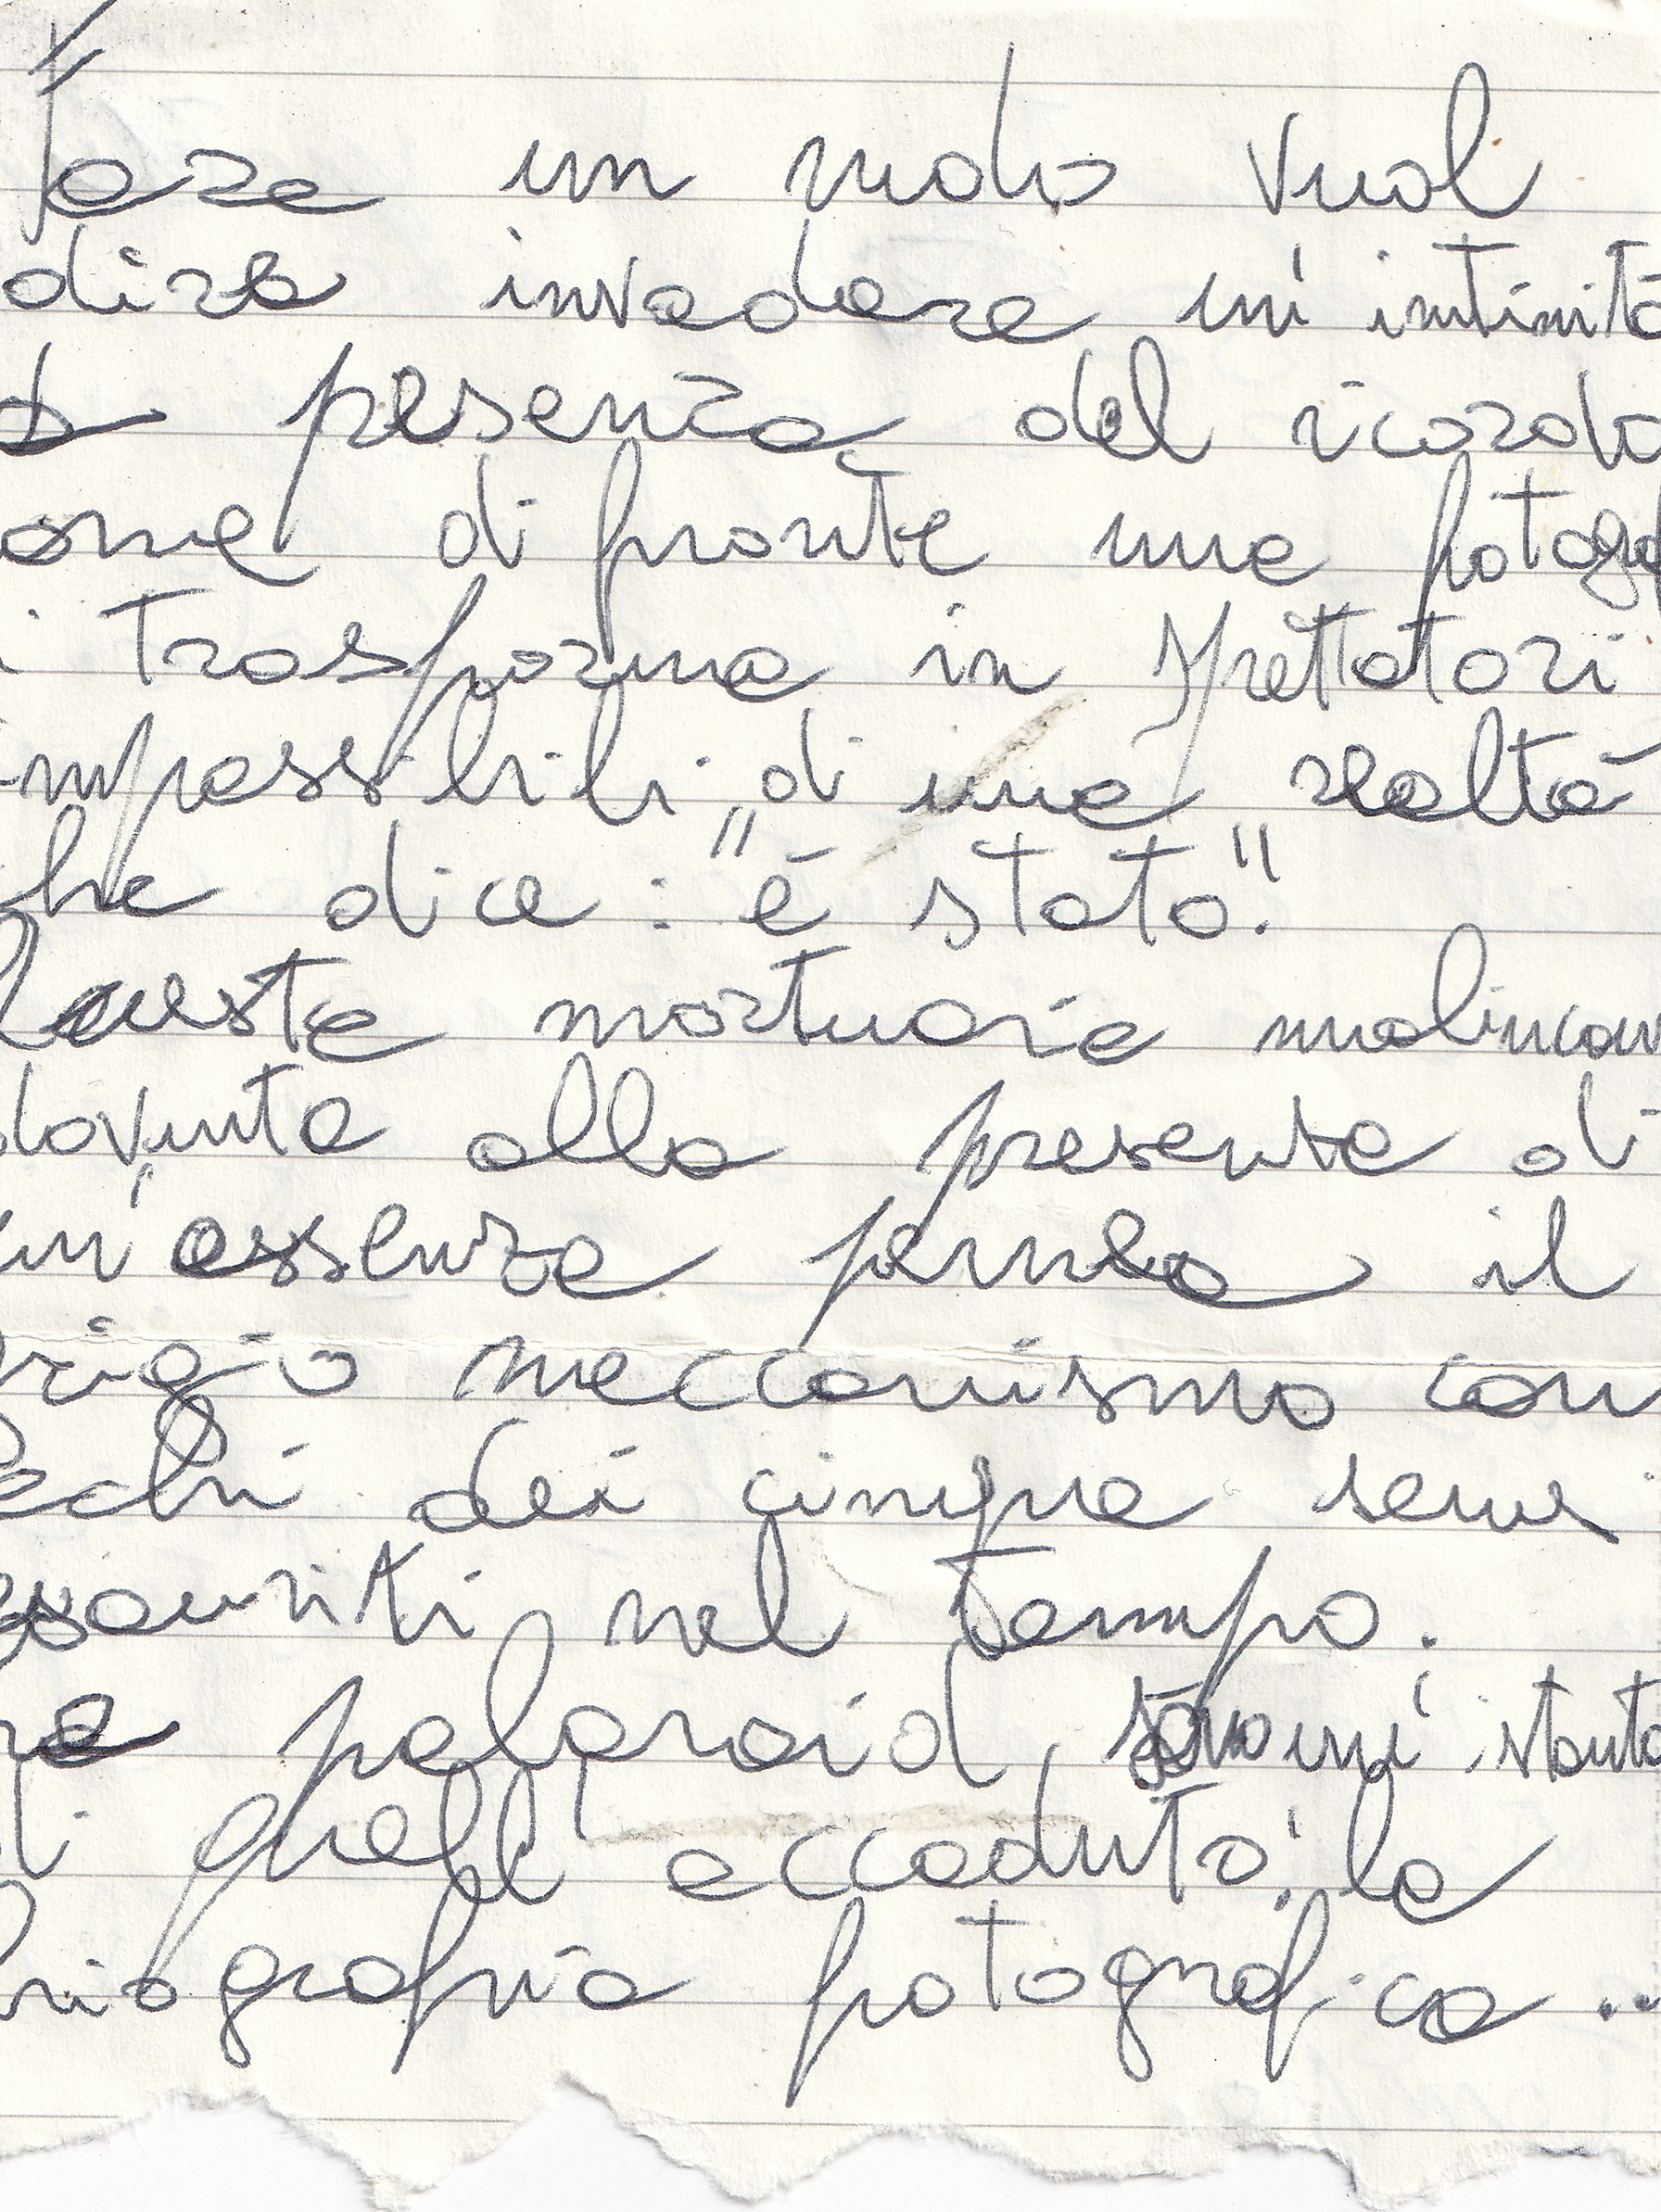 Fare un nudo vuol
dire invadere un'intimità
presenza del ricordo
ome di fronte una fotogra
i trasforma in spettatori
impassibili di una realtà
che dice: "è stato".
Queste mortuarie malincon
dovuta alla presenza di
un'assenza permea il
grigio meccanismo con
echi dei cinque sensi
esauriti nel tempo.
na polaroid, sono un'istanta
di quell accaduto: la
biografia fotografica ..